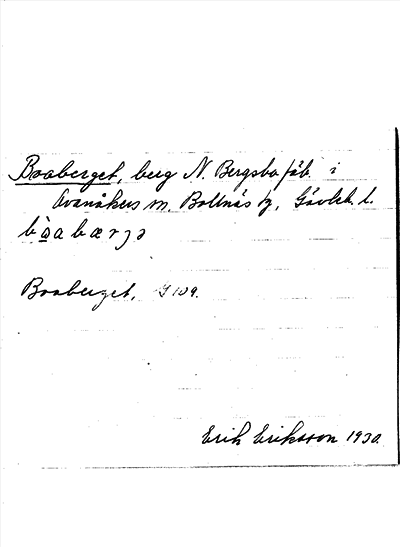 Boaberget, berg N. Bergsbo fäb. i
Ovanåkers sn. Bollnäs tg, Gävleb. l.
Boaberget, J 109.
Erik Eriksson 1930